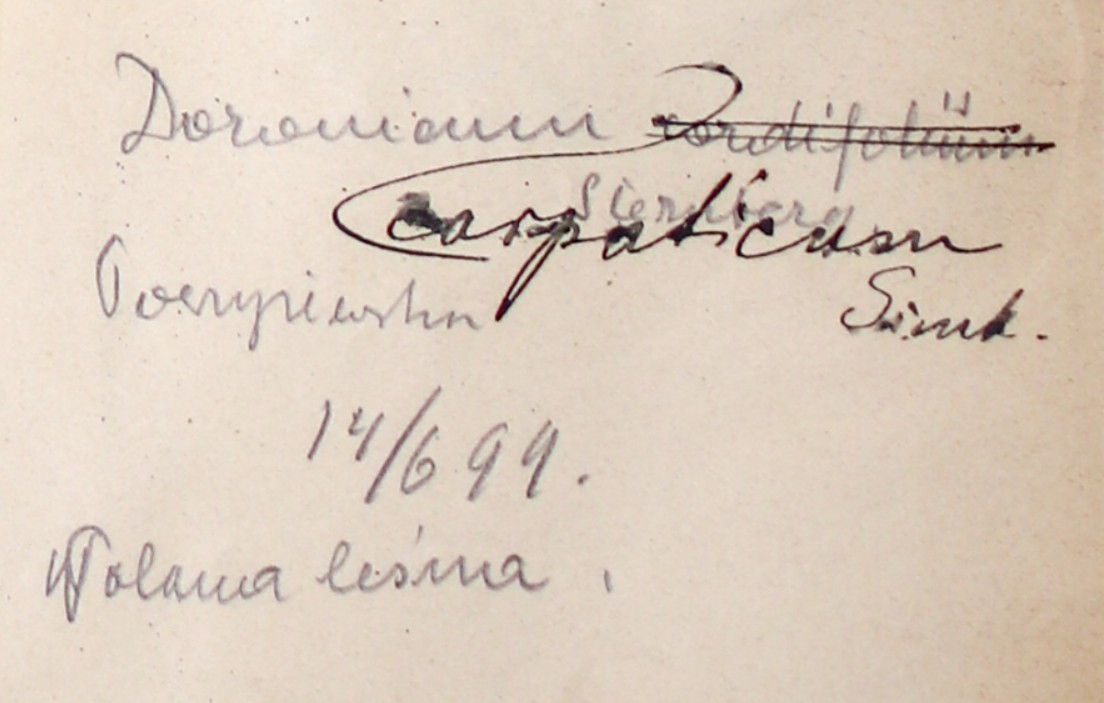 Doronicum cordifolium
Sternberg
carpaticum
Simk.
14/6 99.
Polana leśna.